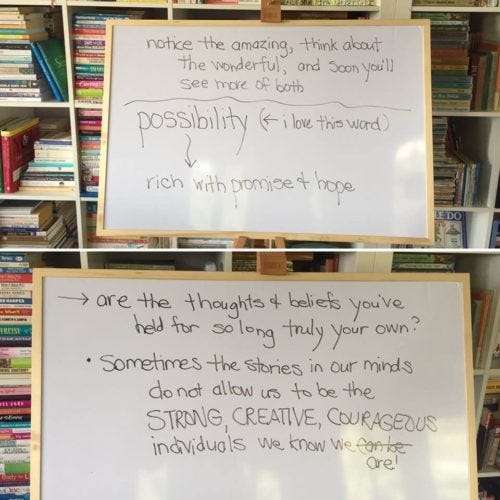 notice the amazing, think about
the wonderful, and soon you'll
see more of both
possibility (← i love this word)
↓
rich with promise & hope
→ are the thoughts & beliefs you've
held for so long truly your own?
• Sometimes the stories in our minds
do not allow us to be the
STRONG, CREATIVE, COURAGEOUS
individuals we know we can be
are!